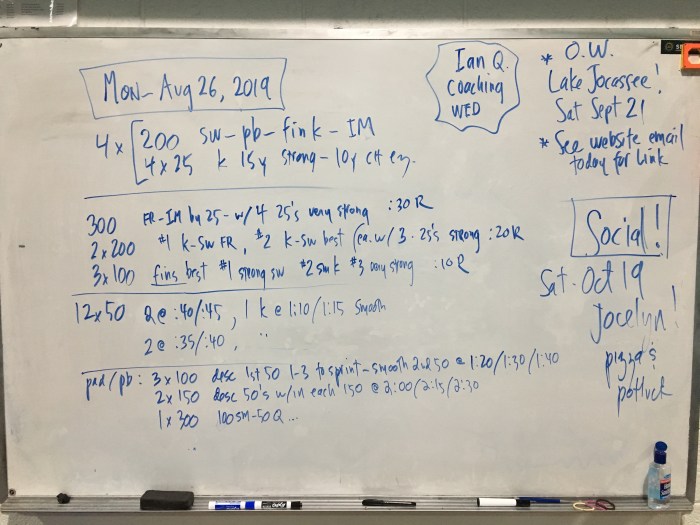 Mon- Aug 26, 2019
4 x 200 sw-pb-fin k-IM
4 x 25 k 15y strong-10y CH ez.
300 FR-IM by 25- w/ 4 25's very strong :30 R
2 x 200 #1 k-sw FR, #2 k-sw best (ea. w/ 3 - 25's strong :20R
3 x 100 fins best #1 strong sw #2 sm k #3 very strong :10 R
12 x 50 2 @ :40/:45, 1 k @ 1:10/1:15 smooth
2 @ :35/:40, "
pad/pb: 3 x 100 desc 1st 50 1-3 to sprint-smooth 2nd 50 @ 1:20/1:30/1:40
2 x 150 desc 50's w/in each 150 @ 2:00/2:15/2:30
1 x 300 100 SM-50 Q...
Ian Q.
Coaching
WED
* O.W.
Lake Jocassee!
Sat Sept 21
* See website email
today for link
Social!
Sat. Oct 19
Jocelyn!
pizza &
potluck
EXPO